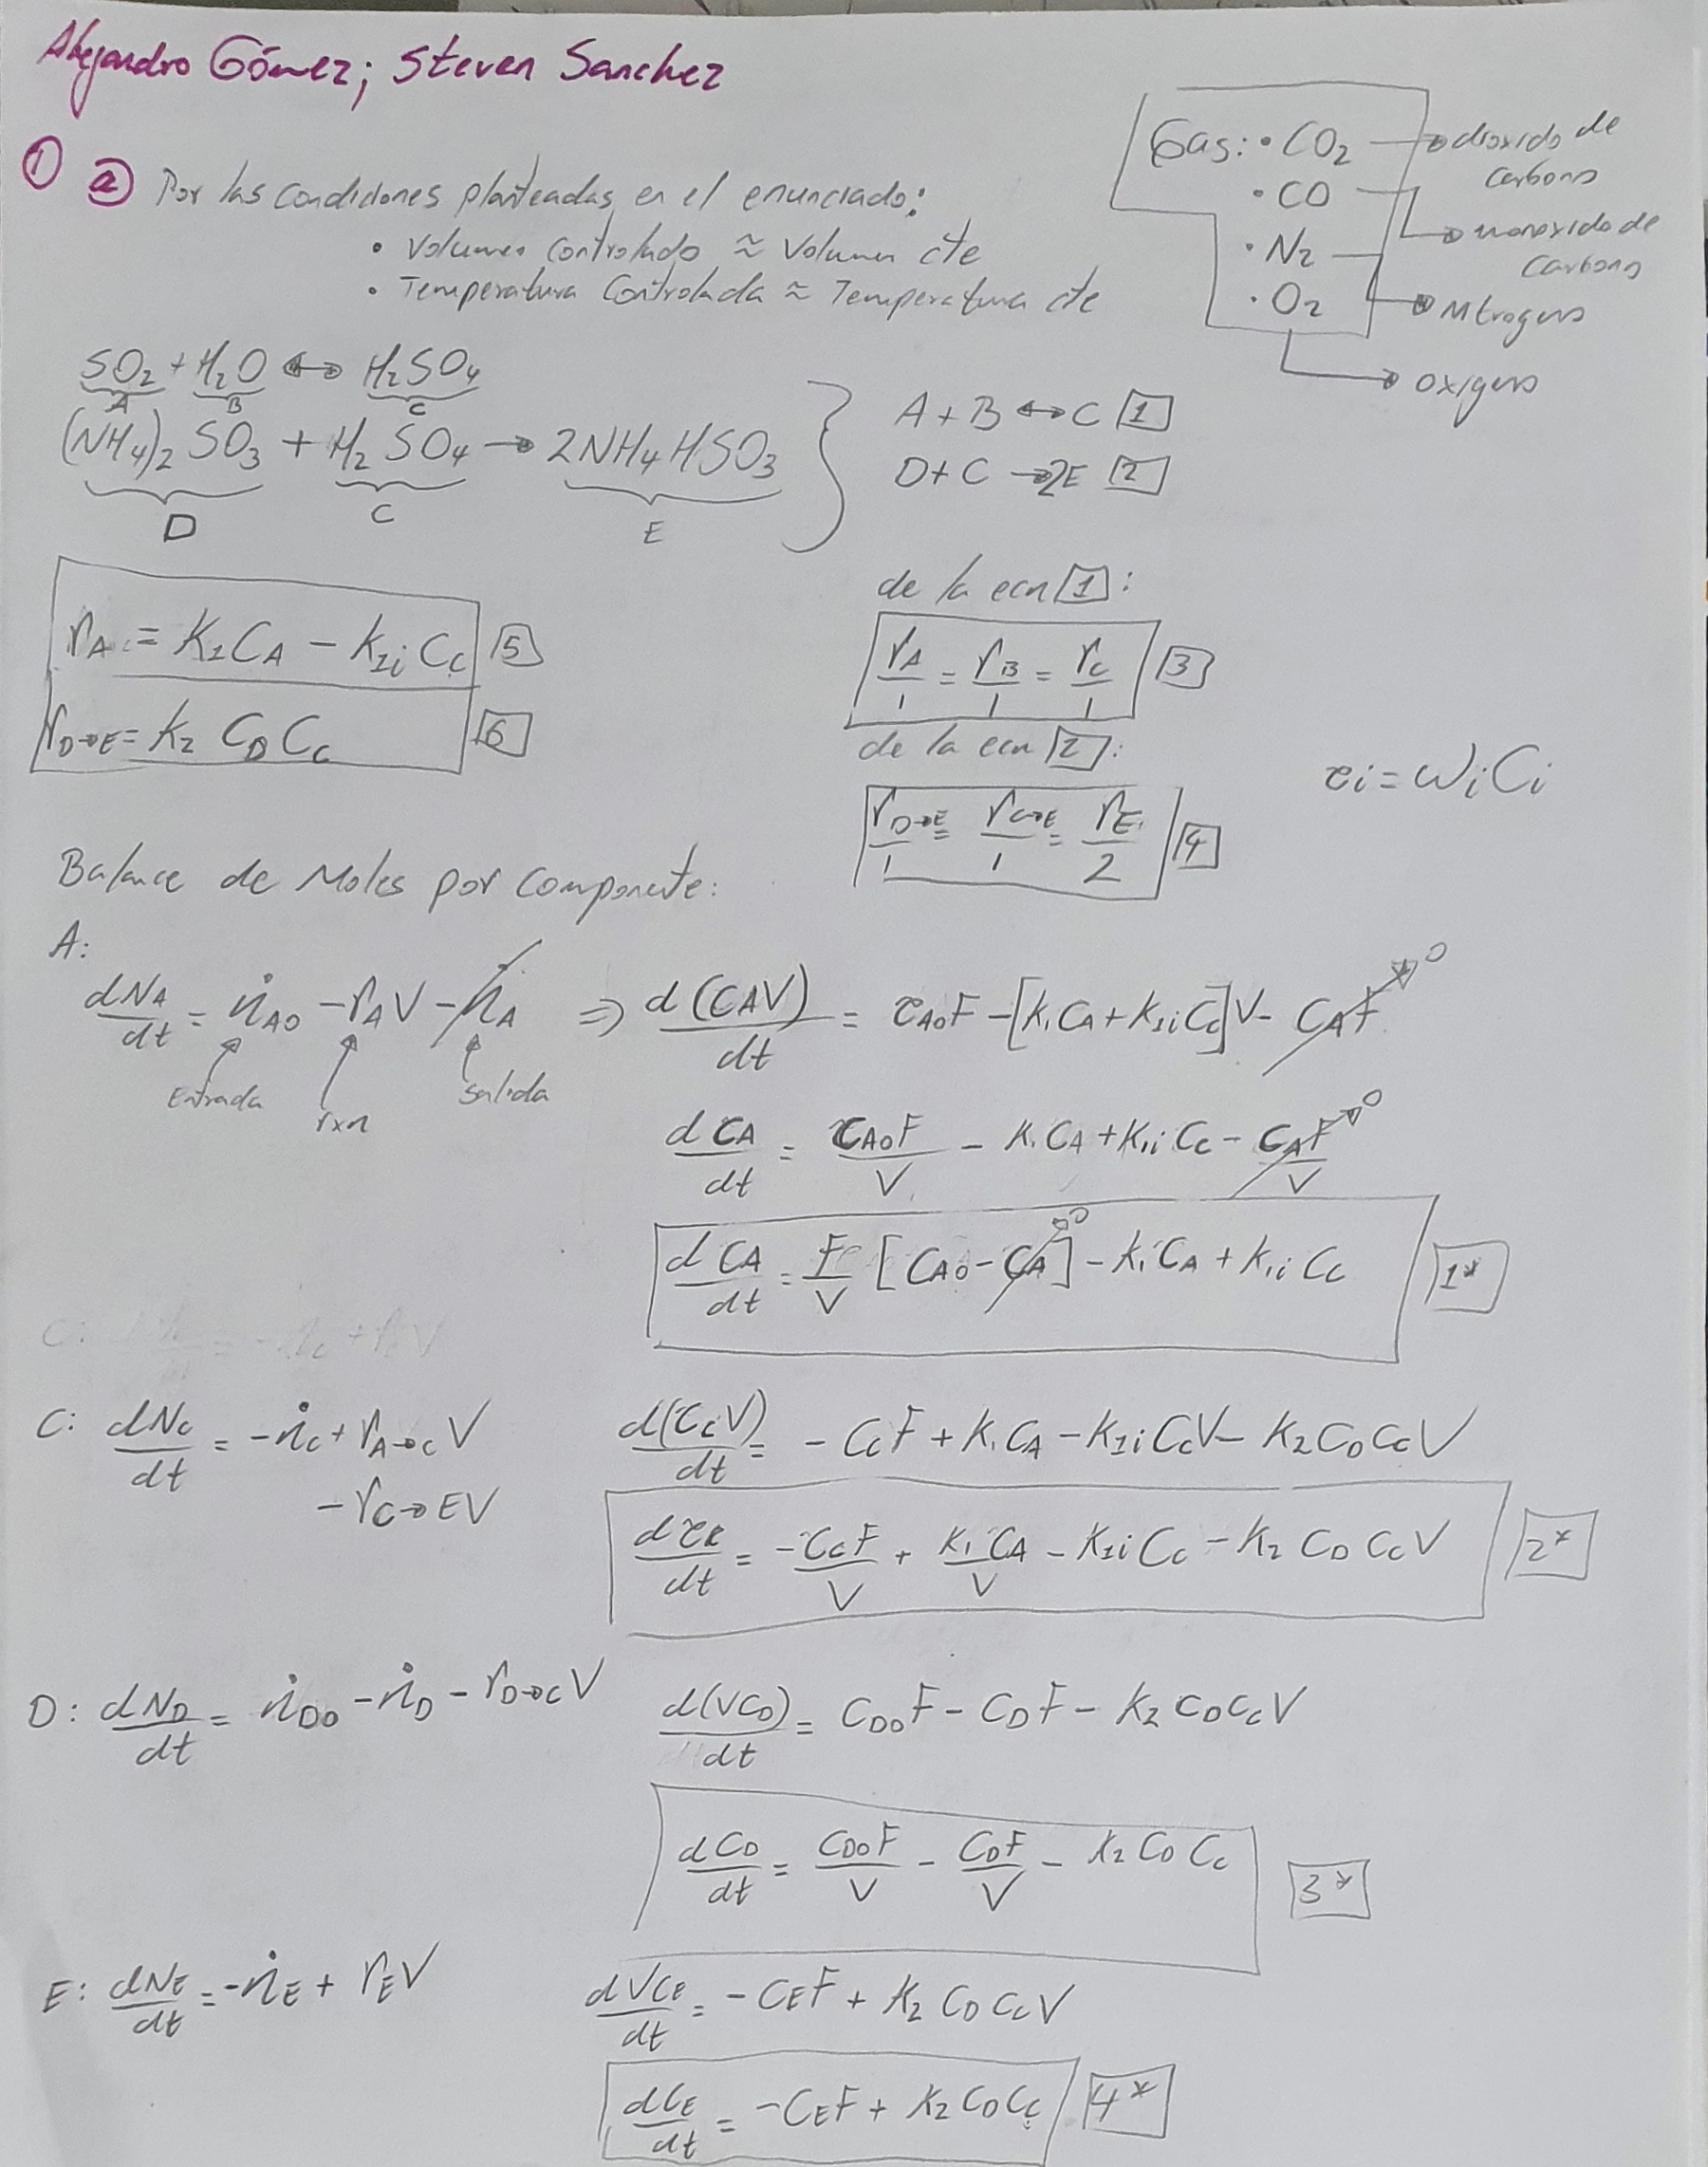 Alejandro Gómez; Steven Sanchez
① ⓐ Por las condiciones planteadas en el enunciado:
• Volumen Controlado ≈ Volumen cte
• Temperatura Controlada ≈ Temperatura cte
Gas: • CO₂ → dioxido de carbono
• CO → monoxido de carbono
• N₂ → Nitrogeno
• O₂ → oxigeno
SO₂ + H₂O ↔ H₂SO₄
A B C
(NH₄)₂SO₃ + H₂SO₄ → 2NH₄HSO₃
D C E
A + B ↔ C [1]
D + C → 2E [2]
r_A = K₁C_A − k₁ᵢC_C [5]
r_D→E = k₂ C_D C_C [6]
de la ecn [1]:
r_A/1 = r_B/1 = r_C/1 [3]
de la ecn [2]:
r_D→E/1 = r_C→E/1 = r_E/2 [4]
ci = ωi Ci
Balance de Moles por componente:
A:
dN_A/dt = ṅ_A0 − r_A V − ṅ_A ⇒ d(C_A V)/dt = C_A0 F − [k₁C_A + k₁ᵢC_C]V − C_A F → 0
Entrada rxn Salida
dC_A/dt = C_A0 F/V − k₁C_A + k₁ᵢC_C − C_A F/V → 0
dC_A/dt = F/V [C_A0 − C_A → 0] − k₁C_A + k₁ᵢC_C [1*]
C: dN_C/dt = −ṅ_C + r_A→C V − r_C→E V
d(C_C V)/dt = −C_C F + K₁C_A − K₁ᵢC_C V − K₂C_D C_C V
dC_C/dt = −C_C F/V + K₁C_A/V − K₁ᵢC_C − K₂ C_D C_C V [2*]
D: dN_D/dt = ṅ_D0 − ṅ_D − r_D→C V
d(VC_D)/dt = C_D0 F − C_D F − K₂ C_D C_C V
dC_D/dt = C_D0 F/V − C_D F/V − K₂ C_D C_C [3*]
E: dN_E/dt = −ṅ_E + r_E V
dVC_E/dt = −C_E F + K₂ C_D C_C V
dC_E/dt = −C_E F + K₂ C_D C_C [4*]